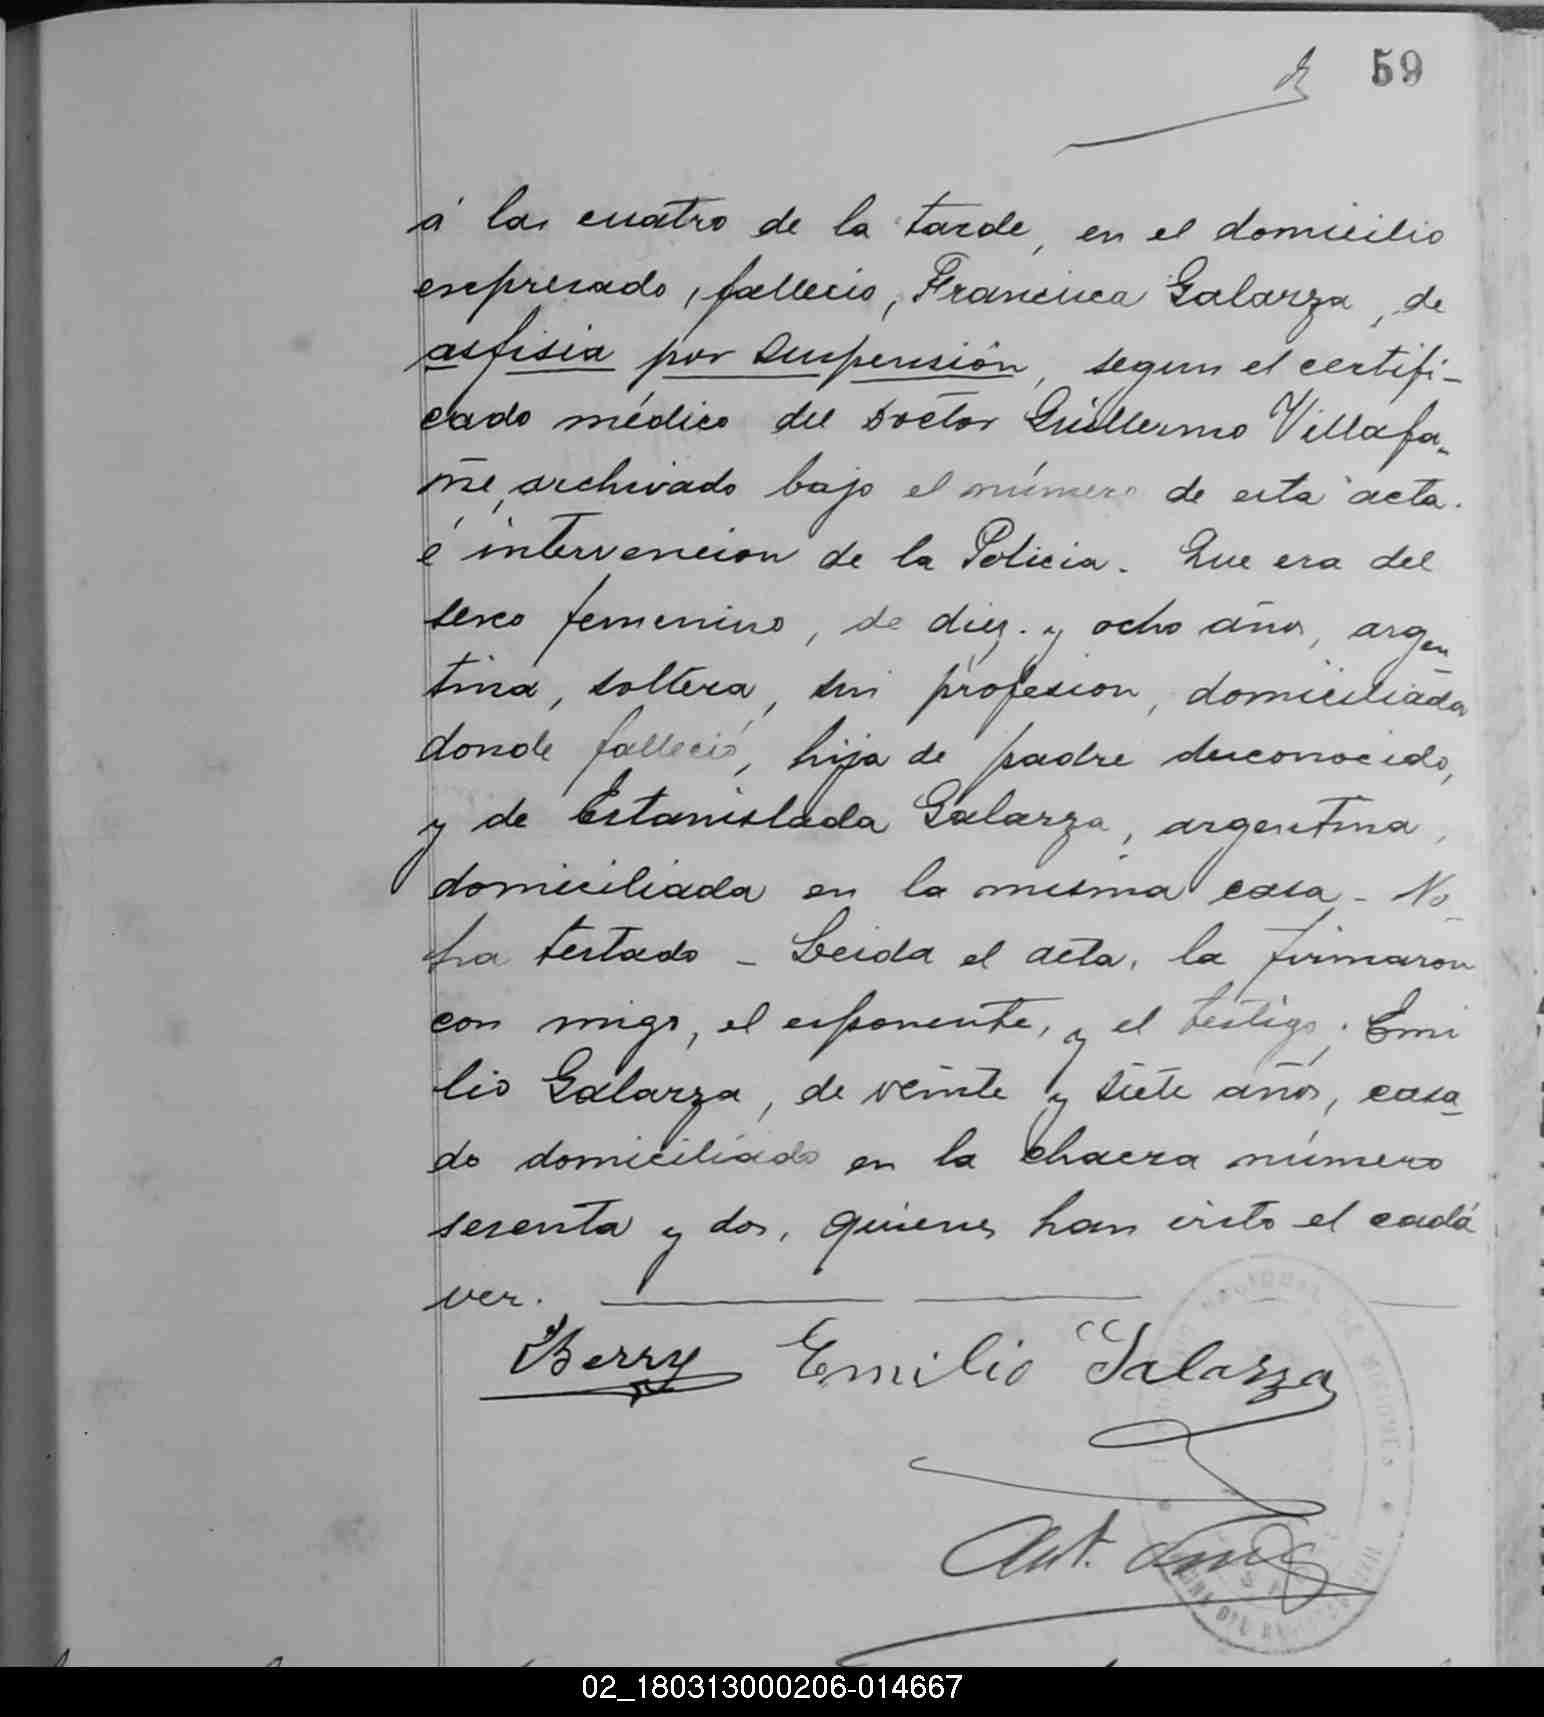 59
á las cuatro de la tarde, en el domicilio
expresado, fallecio, Francisca Galarza, de
asfisia por suspensión, segun el certifi-
cado médico del Doctor Guillermo Villafa-
ñe, archivado bajo el número de esta acta.
é intervencion de la Policia. Que era del
sexo femenino, de diez y ocho años, argen-
tina, soltera, sin profesion, domiciliada
donde falleció, hija de padre desconocido,
y de Estanislada Galarza, argentina,
domiciliada en la misma casa - No
ha testado - Leida el acta, la firmaron
con migo, el esponente, y el testigo, Emi
lio Galarza, de veinte y siete años, casa-
do domiciliado en la chacra número
sesenta y dos, quienes han visto el cadá
ver.
Berry Emilio Galarza
Ant.
02_180313000206-014667